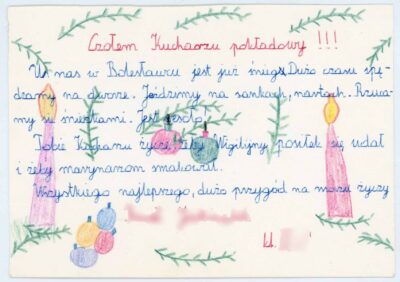 Czołem Kucharzu pokładowy !!!
U nas w Bolesławcu jest już śnieg. Dużo czasu spę-
dzamy na dworze. Jeździmy na sankach, nartach. Rzuca-
my się śnieżkami. Jest wesoło.
Tobie życzę, żeby Wigilijny posiłek się udał
i żeby marynarzom smakował.
Wszystkiego najlepszego, dużo przygód na morzu życzy
kl.